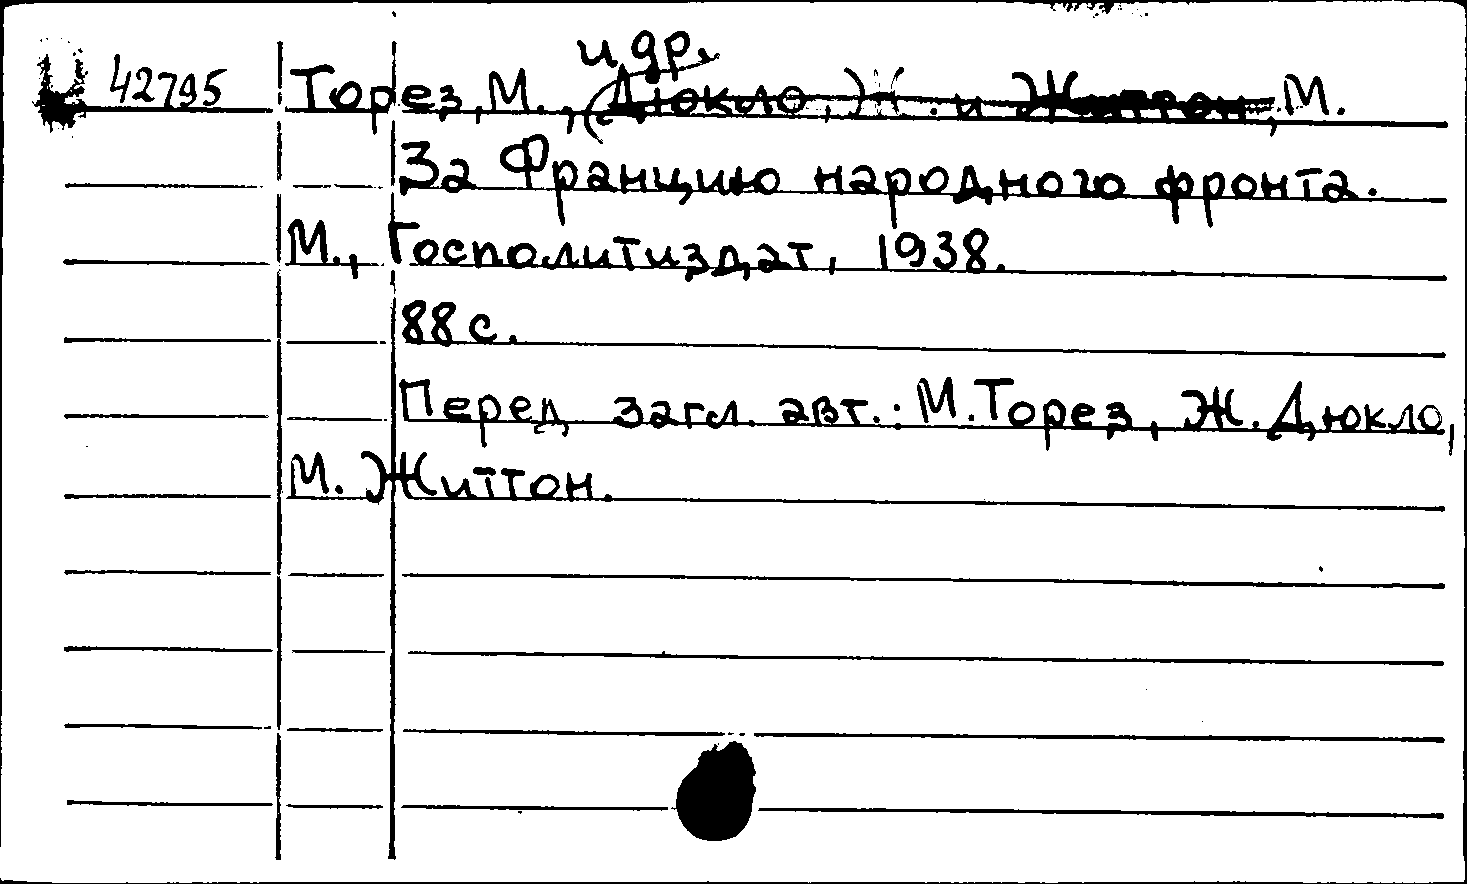 42795 Торез, М., и др. (Дюкло, Ж. и Життон, М.
За Францию народного фронта.
М., Госполитиздат, 1938.
88 с.
Перед загл. авт.: М. Торез, Ж. Дюкло,
М. Життон.